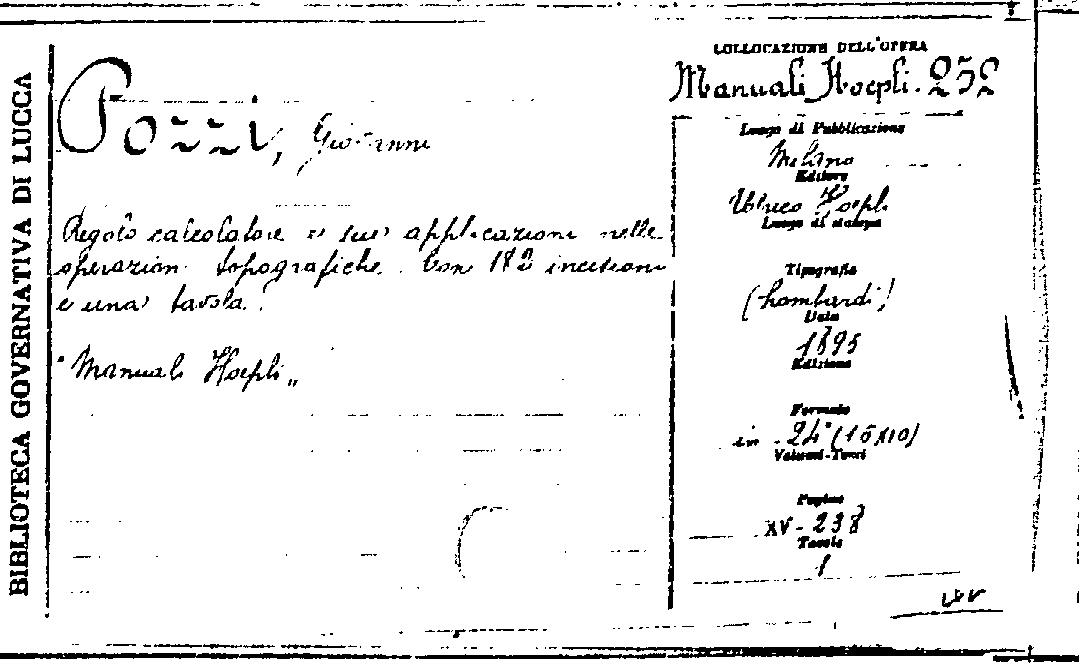 BIBLIOTECA GOVERNATIVA DI LUCCA
Pozzi, Giovanni
Regolo calcolatore e sue applicazioni nelle
operazioni topografiche. Con 182 incisioni
e una tavola.
"Manuali Hoepli"
COLLOCAZIONE DELL'OPERA
Manuali Hoepli. 252
Luogo di Pubblicazione
Milano
Editore
Ulrico Hoepli
Luogo di stampa
Tipografia
(Lombardi)
Data
1895
Edizione
Formato
in 24° (15x10)
Volumi-Tomi
Pagine
XV-238
Tavole
1